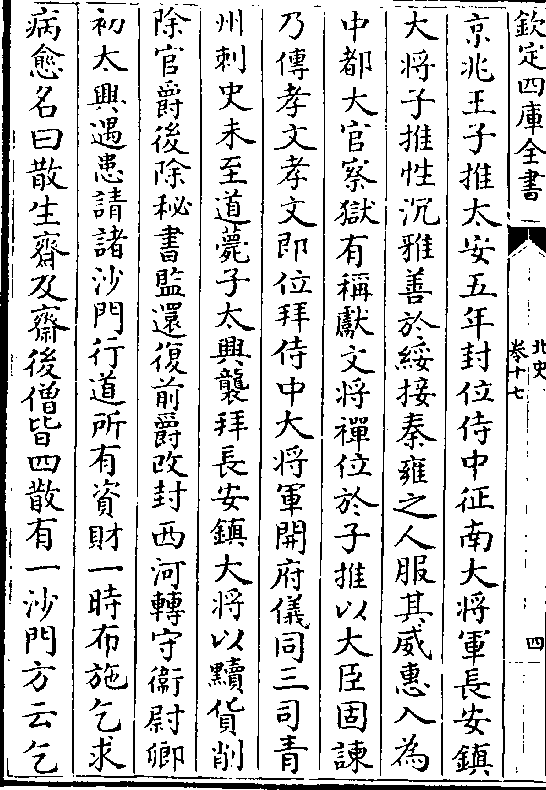 欽定四庫全書
北史
卷十七
四
京兆王子推太安五年封位侍中征南大將軍長安鎮
大將子推性沉雅善於綏接秦雍之人服其威惠入為
中都大官察獄有稱獻文將禪位於子推以大臣固諫
乃傳孝文孝文即位拜侍中大將軍開府儀同三司青
州刺史未至道薨子太興襲拜長安鎮大將以黷貨削
除官爵後除秘書監還復前爵改封西河轉守衞尉卿
初太興遇患請諸沙門行道所有資財一時布施乞求
病愈名曰散生齋及齋後僧皆四散有一沙門方云乞